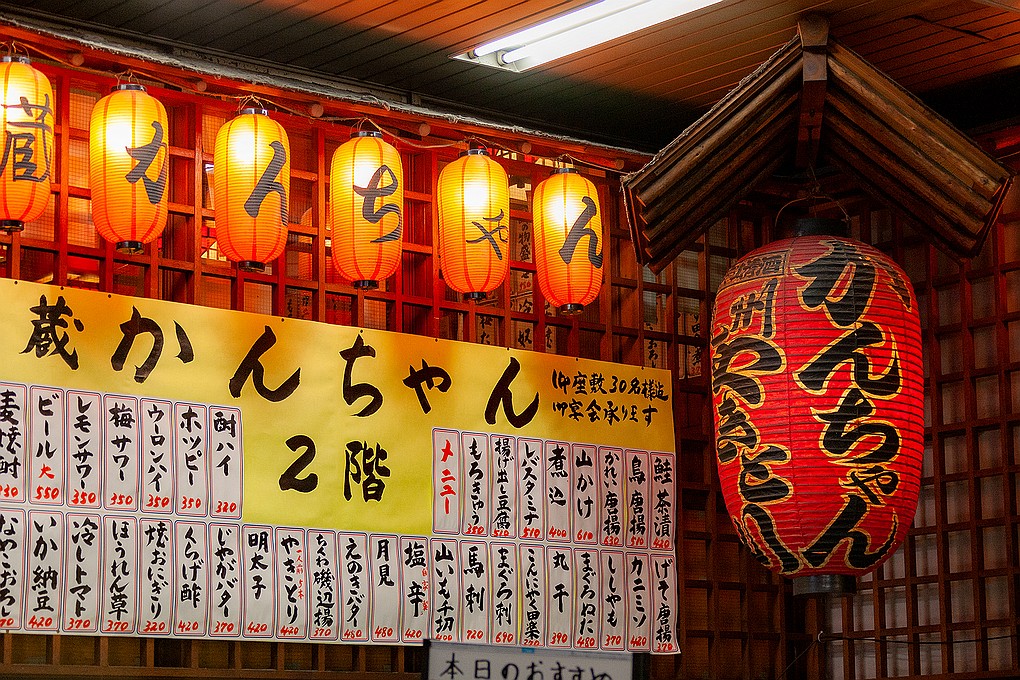 蔵
か
ん
ち
ゃ
ん
蔵かんちゃん
2階
座敷30名様迄
宴会承ります
メニュー
もろきゅう 350
揚げ出し豆腐
レバスタミナ
煮込 400
山かけ 610
かれい唐揚 630
鳥唐揚
鮭茶漬 420
酎ハイ 320
ホッピー 350
ウーロンハイ 350
梅サワー 350
レモンサワー 350
ビール大 550
麦焼酎
げそ唐揚 370
カニミソ
ししゃも 370
まぐろぬた 480
丸干 390
こんにゃく田楽
まぐろ刺 690
馬刺 720
山いも千切
塩辛 420
月見 480
えのきバター 480
ちくわ磯辺揚 370
やきとり 420
明太子 420
じゃがバター 420
くらげ酢 370
焼おにぎり 320
ほうれん草 370
冷しトマト 370
いか納豆 420
なめこおろし
かんちゃん
州やきとん
本日のおすすめ